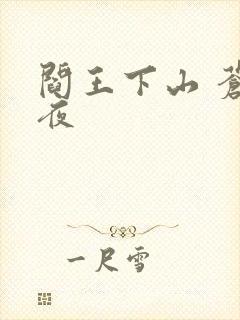 閻王下山 蒼
夜
一尺雪